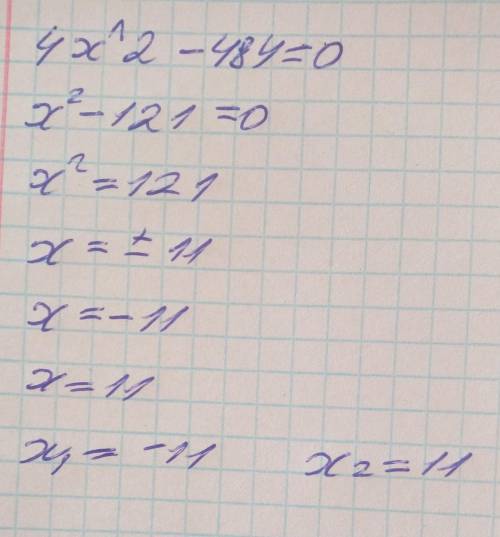 4x^2 - 484 = 0
x² - 121 = 0
x² = 121
x = ± 11
x = - 11
x = 11
x₁ = -11 x₂ = 11